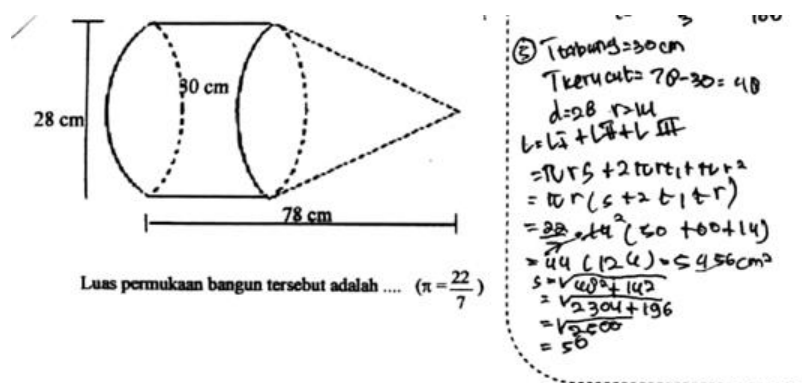 30 cm
28 cm
78 cm
Luas permukaan bangun tersebut adalah .... (π = 22/7)
⑤ Ttabung = 30 cm
Tkerucut = 78-30 = 48
d=28 r=14
L = LI + LII + L III
= πrs + 2πrt₁ + πr²
= πr(s + 2t₁ + r)
= 22/7 · 14² (50 + 60 + 14)
= 44 (124) = 5456 cm²
s = √48² + 14²
= √2304 + 196
= √2500
= 50